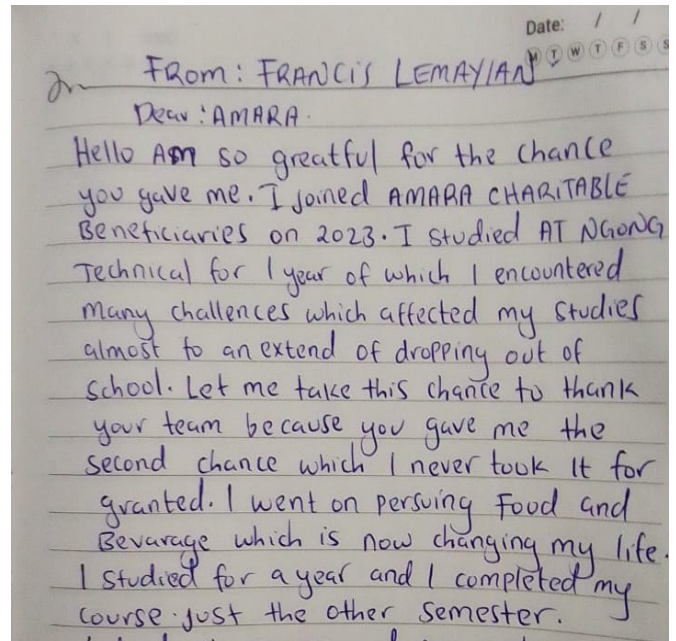 Date: / /
M T W T F S S
FROM: FRANCIS LEMAYIAN
Dear: AMARA.
Hello Am so greatful for the chance
you gave me. I joined AMARA CHARITABLE
Beneficiaries on 2023. I studied AT NGONG
Technical for 1 year of which I encountered
many challences which affected my studies
almost to an extend of dropping out of
school. Let me take this chance to thank
your team because you gave me the
second chance which I never took It for
granted. I went on persuing Food and
Bevarage which is now changing my life.
I studied for a year and I completed my
course just the other semester.